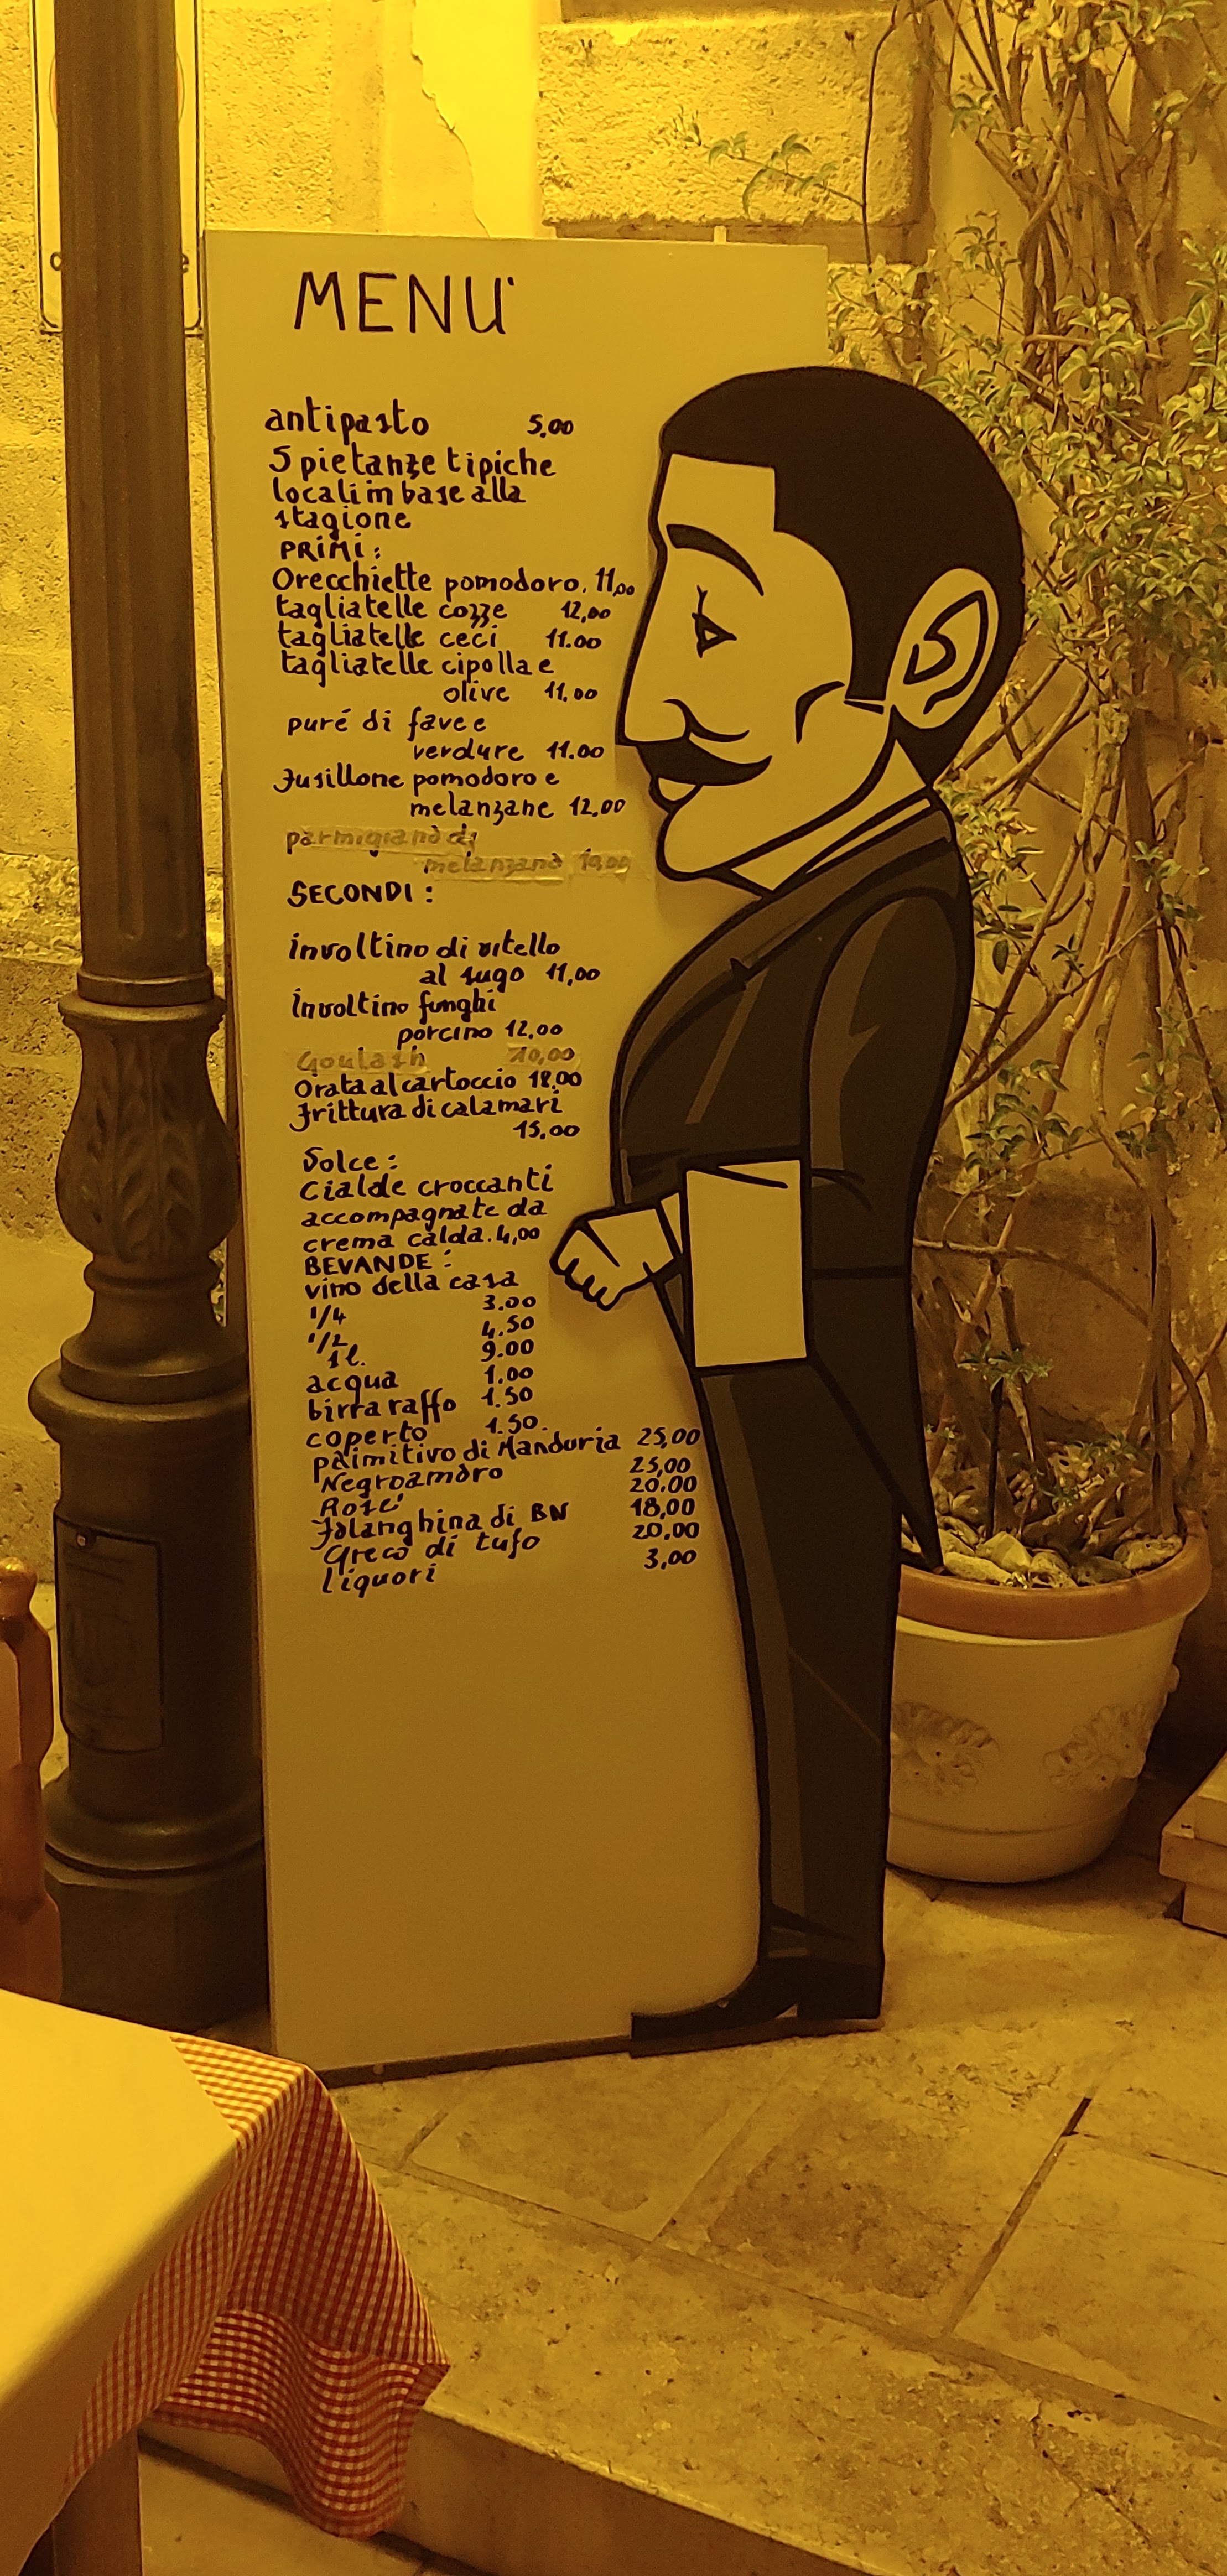 MENU'
antipasto 5,00
5 pietanze tipiche
locali in base alla
stagione
PRIMI:
Orecchiette pomodoro. 11,00
tagliatelle cozze 12,00
tagliatelle ceci 11.00
tagliatelle cipolla e
olive 11,00
puré di fave e
verdure 11.00
Fusillone pomodoro e
melanzane 12,00
parmigiano di
melanzano 10,00
SECONDI:
involtino di vitello
al sugo 11,00
Involtino funghi
porcino 12.00
Goulash 10,00
Orata al cartoccio 18.00
Frittura di calamari
15,00
Dolce:
Cialde croccanti
accompagnate da
crema calda. 4,00
BEVANDE:
vino della casa
1/4 3.00
1/2 4.50
1 l. 9.00
acqua 1.00
birra raffo 1.50
coperto 1.50.
primitivo di Manduria 25,00
Negroamaro 25,00
Rosé 20.00
Falanghina di BN 18,00
Greco di tufo 20,00
liquori 3,00